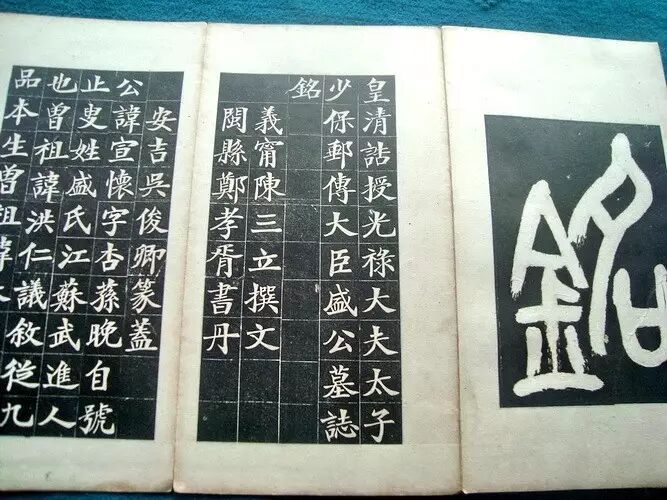 銘
皇清誥授光祿大夫太子
少保郵傳大臣盛公墓誌
銘
義甯陳三立撰文
閩縣鄭孝胥書丹
安吉吳俊卿篆蓋
公諱宣懷字杏蓀晚自號
止叟姓盛氏江蘇武進人
也曾祖諱洪仁議敘從九
品本生曾祖諱